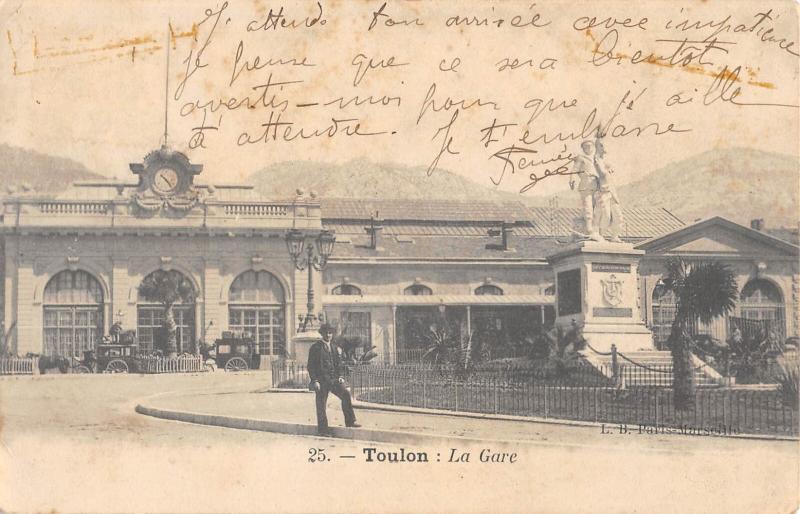 J'attends ton arrivée avec impatience
je pense que ce sera bientôt,
avertis-moi pour que j'aille
t'attendre. Je t'embrasse
25. — Toulon : La Gare
L. B. Paris-Marseille